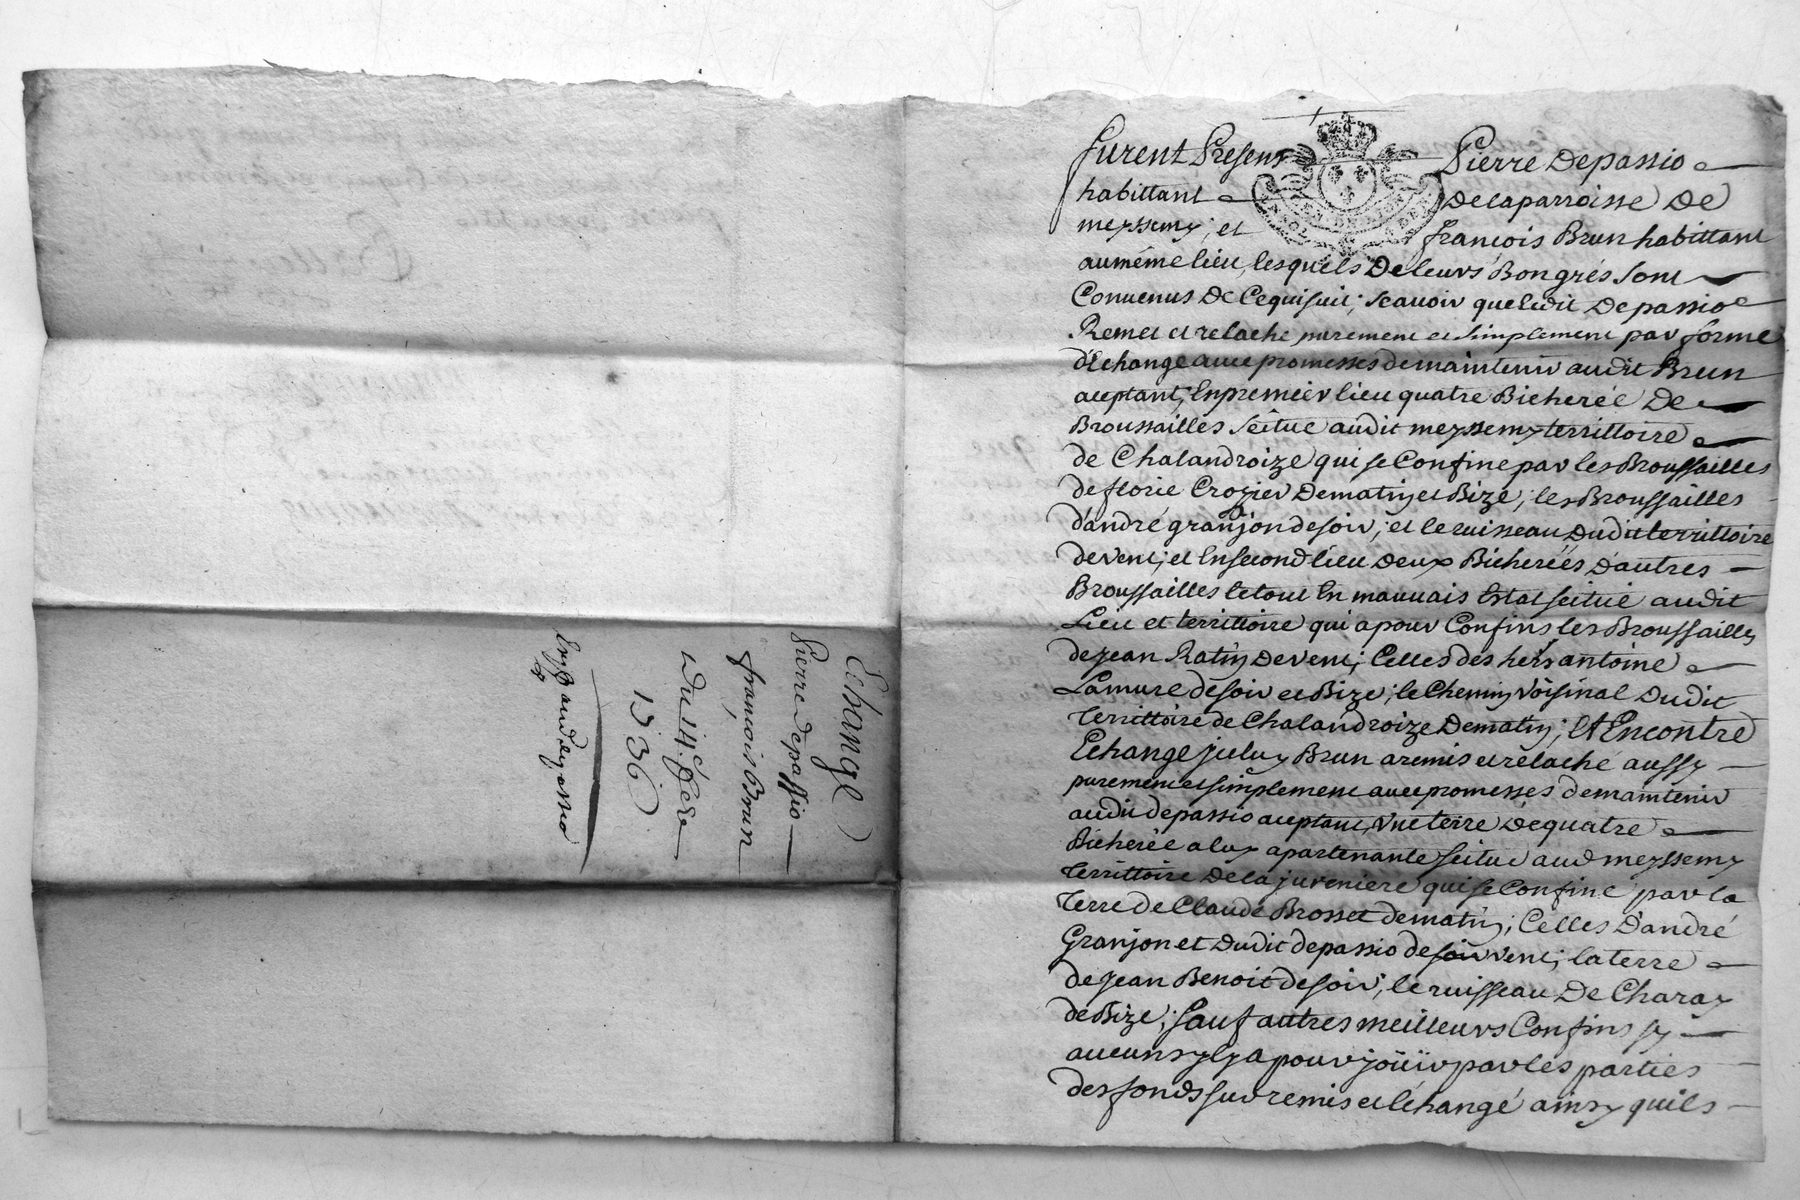 Echange
Pierre depassio
françois Brun
Du 14e. fere
1736
Exp. aud. depassio
furent Presens Pierre Depassio
habittant Delaparroisse De
meyssemy; et françois Brun habittant
aumême lieu, lesquels Deleurs Bongrés sont
Conuenus De Cequisuit; scauoir queledit Depassio
Remet et relache purement et simplement par forme
d'Echange auec promesses demaintenir audit Brun
aceptant, Enpremier lieu quatre Bicherée De
Broussailles scitue audit meyssemy territtoire
de Chalandroize qui se Confine par les Broussailles
de florie Crozier Dematin et Bize; les Broussailles
d'andré granjon desoir; et le ruisseau Dudit territtoire
devent; et Ensecond lieu Deux Bicherées D'autres
Broussailles letout En mauuais Estat scitué audit
Lieu et territtoire qui a pour Confins les Broussailles
de jean Ratin Devent; Celles des heirs antoine
Lamure desoir et Bize; le Chemin Voisinal Dudit
territtoire de Chalandroize Dematin; Et Encontre
Echange jceluy Brun a remis et relaché aussy
purement et simplement auec promesses demaintenir
audit depassio aceptant, Vne terre Dequatre
Bicherée a luy apartenante scitue aud meyssemy
territtoire Dela juveniere qui se Confine par la
terre de Claude Brosset dematin; Celles D'andré
Granjon et Dudit depassio de soir vent; la terre
de jean Benoit desoir; le ruisseau De Charay
de Bize; sauf autres meilleurs Confins sy
aucuns y ly a pour joüir par les parties
des fonds sus remis et Echangé ainsy quils